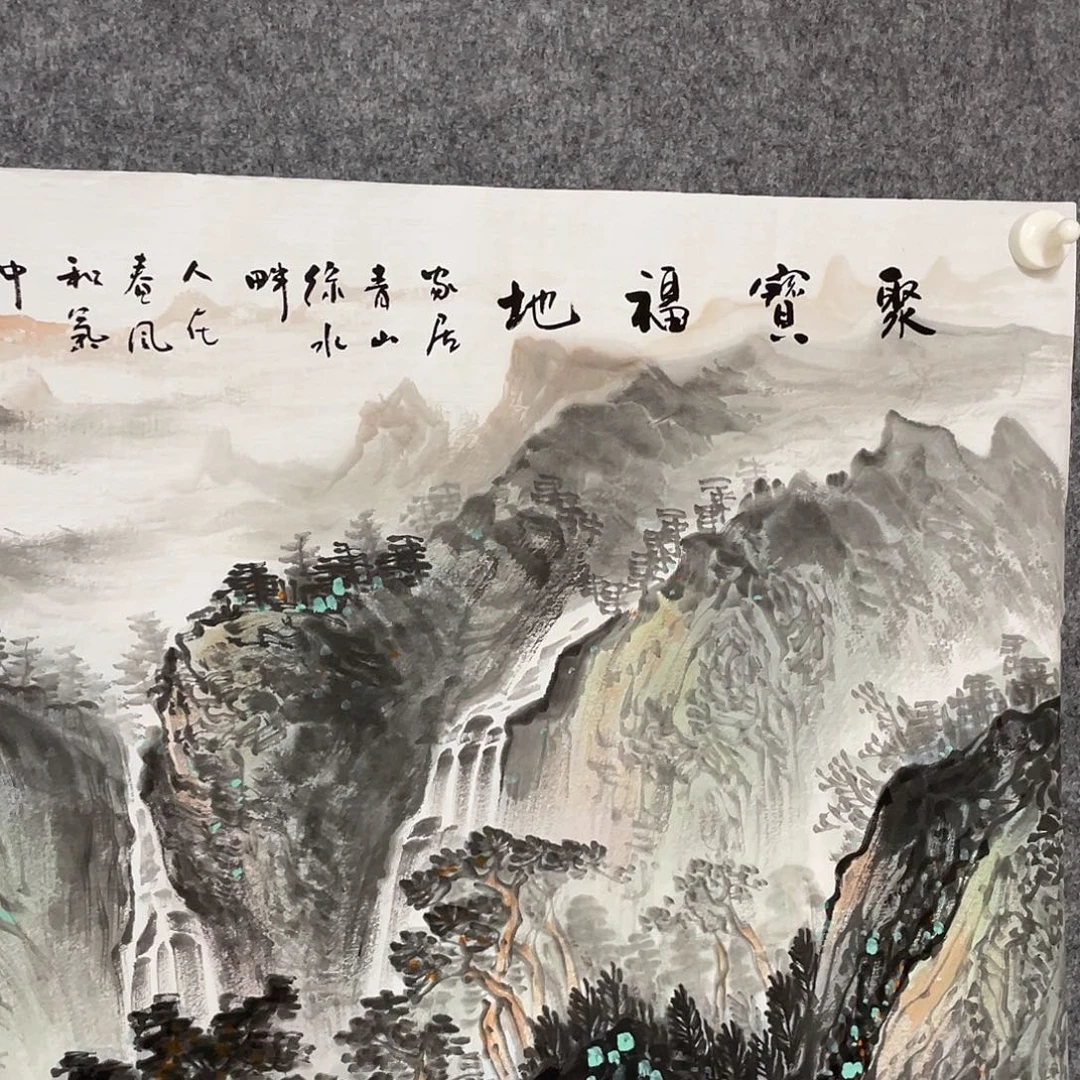 聚寶福地
家居青山綠水畔
人在春風和氣中